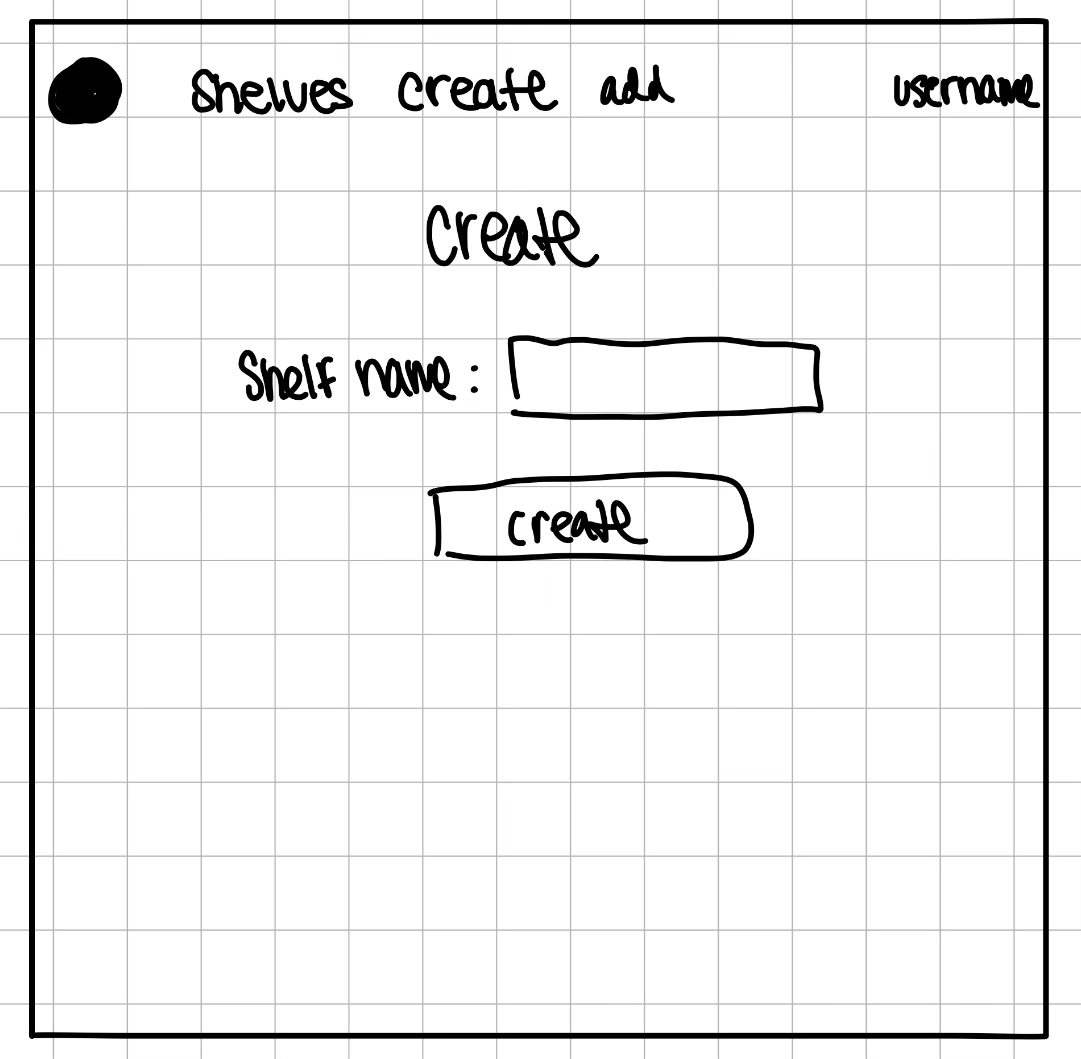 Shelves create add username
Create
Shelf name:
create